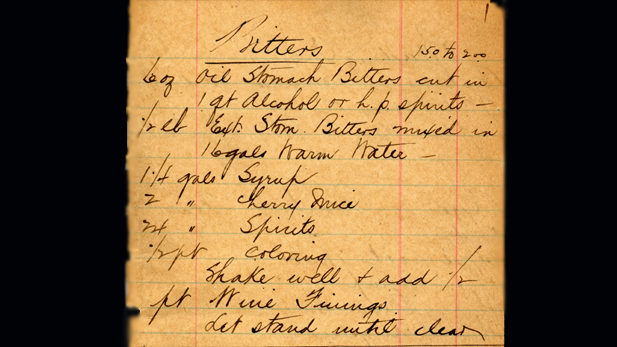 1
Bitters 150 to 200
6 oz Oil Stomach Bitters cut in
1 qt Alcohol or h.p. spirits –
1/2 lb Ext. Stom. Bitters mixed in
16 gals Warm Water –
1 1/4 gals Syrup
2 " Cherry Juice
24 " Spirits
1/2 pt Coloring
Shake well + add 1/2
pt Wine Finings
Let stand until clear